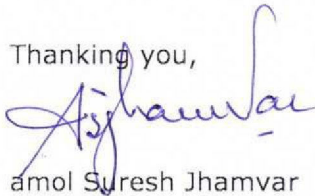 Thanking you,
Asjhamvar
amol Suresh Jhamvar